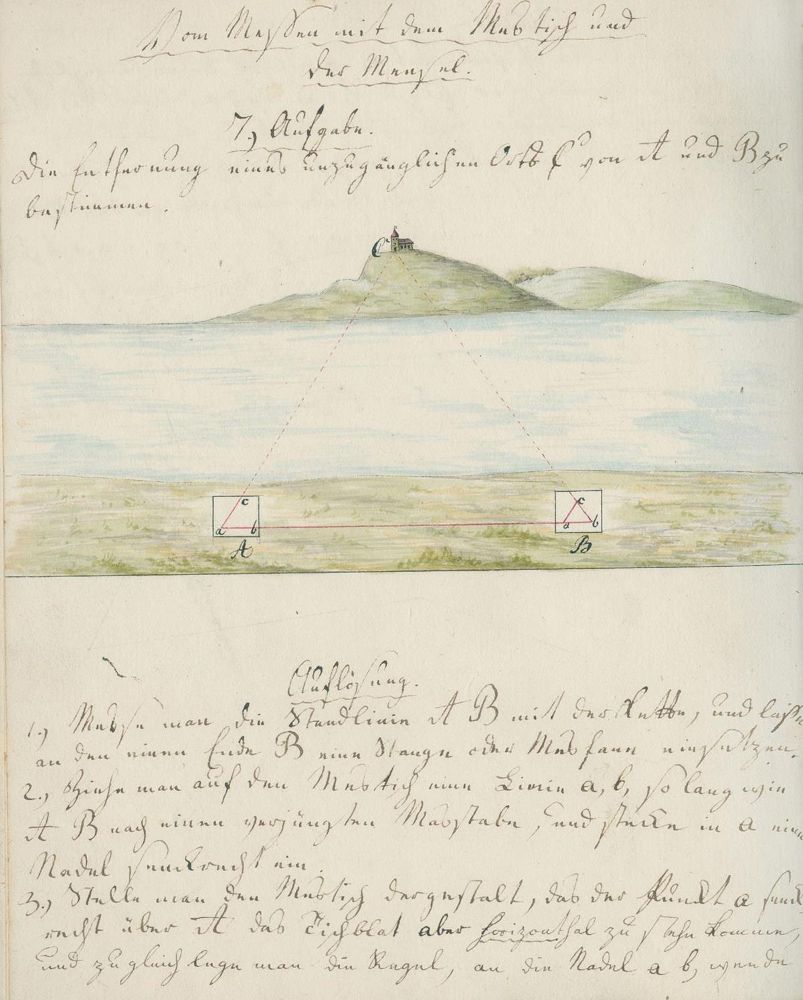 Vom Messen mit dem Mestisch und
der Mensel.
7., Aufgabe.
Die Entfernung eines unzugänglichen Orts C von A und B zu
bestimmen.
C
c
a b
A
c
a b
B
Auflösung.
1., Messe man die Standlinie A B mit der Kette, und lasse
an den einen Ende B eine Stange oder Mesfane einsetzen.
2., Ziehe man auf den Mestisch eine Linie a, b, so lang wie
A B nach einen verjüngten Masstabe, und stecke in a eine
Nadel senckrecht ein.
3., Stelle man den Mestisch dergestalt, das der Punckt a senck
recht über A das Tischblat aber horizonthal zu stehn komme,
und zugleich lege man die Regel, an die Nadel a b, wende